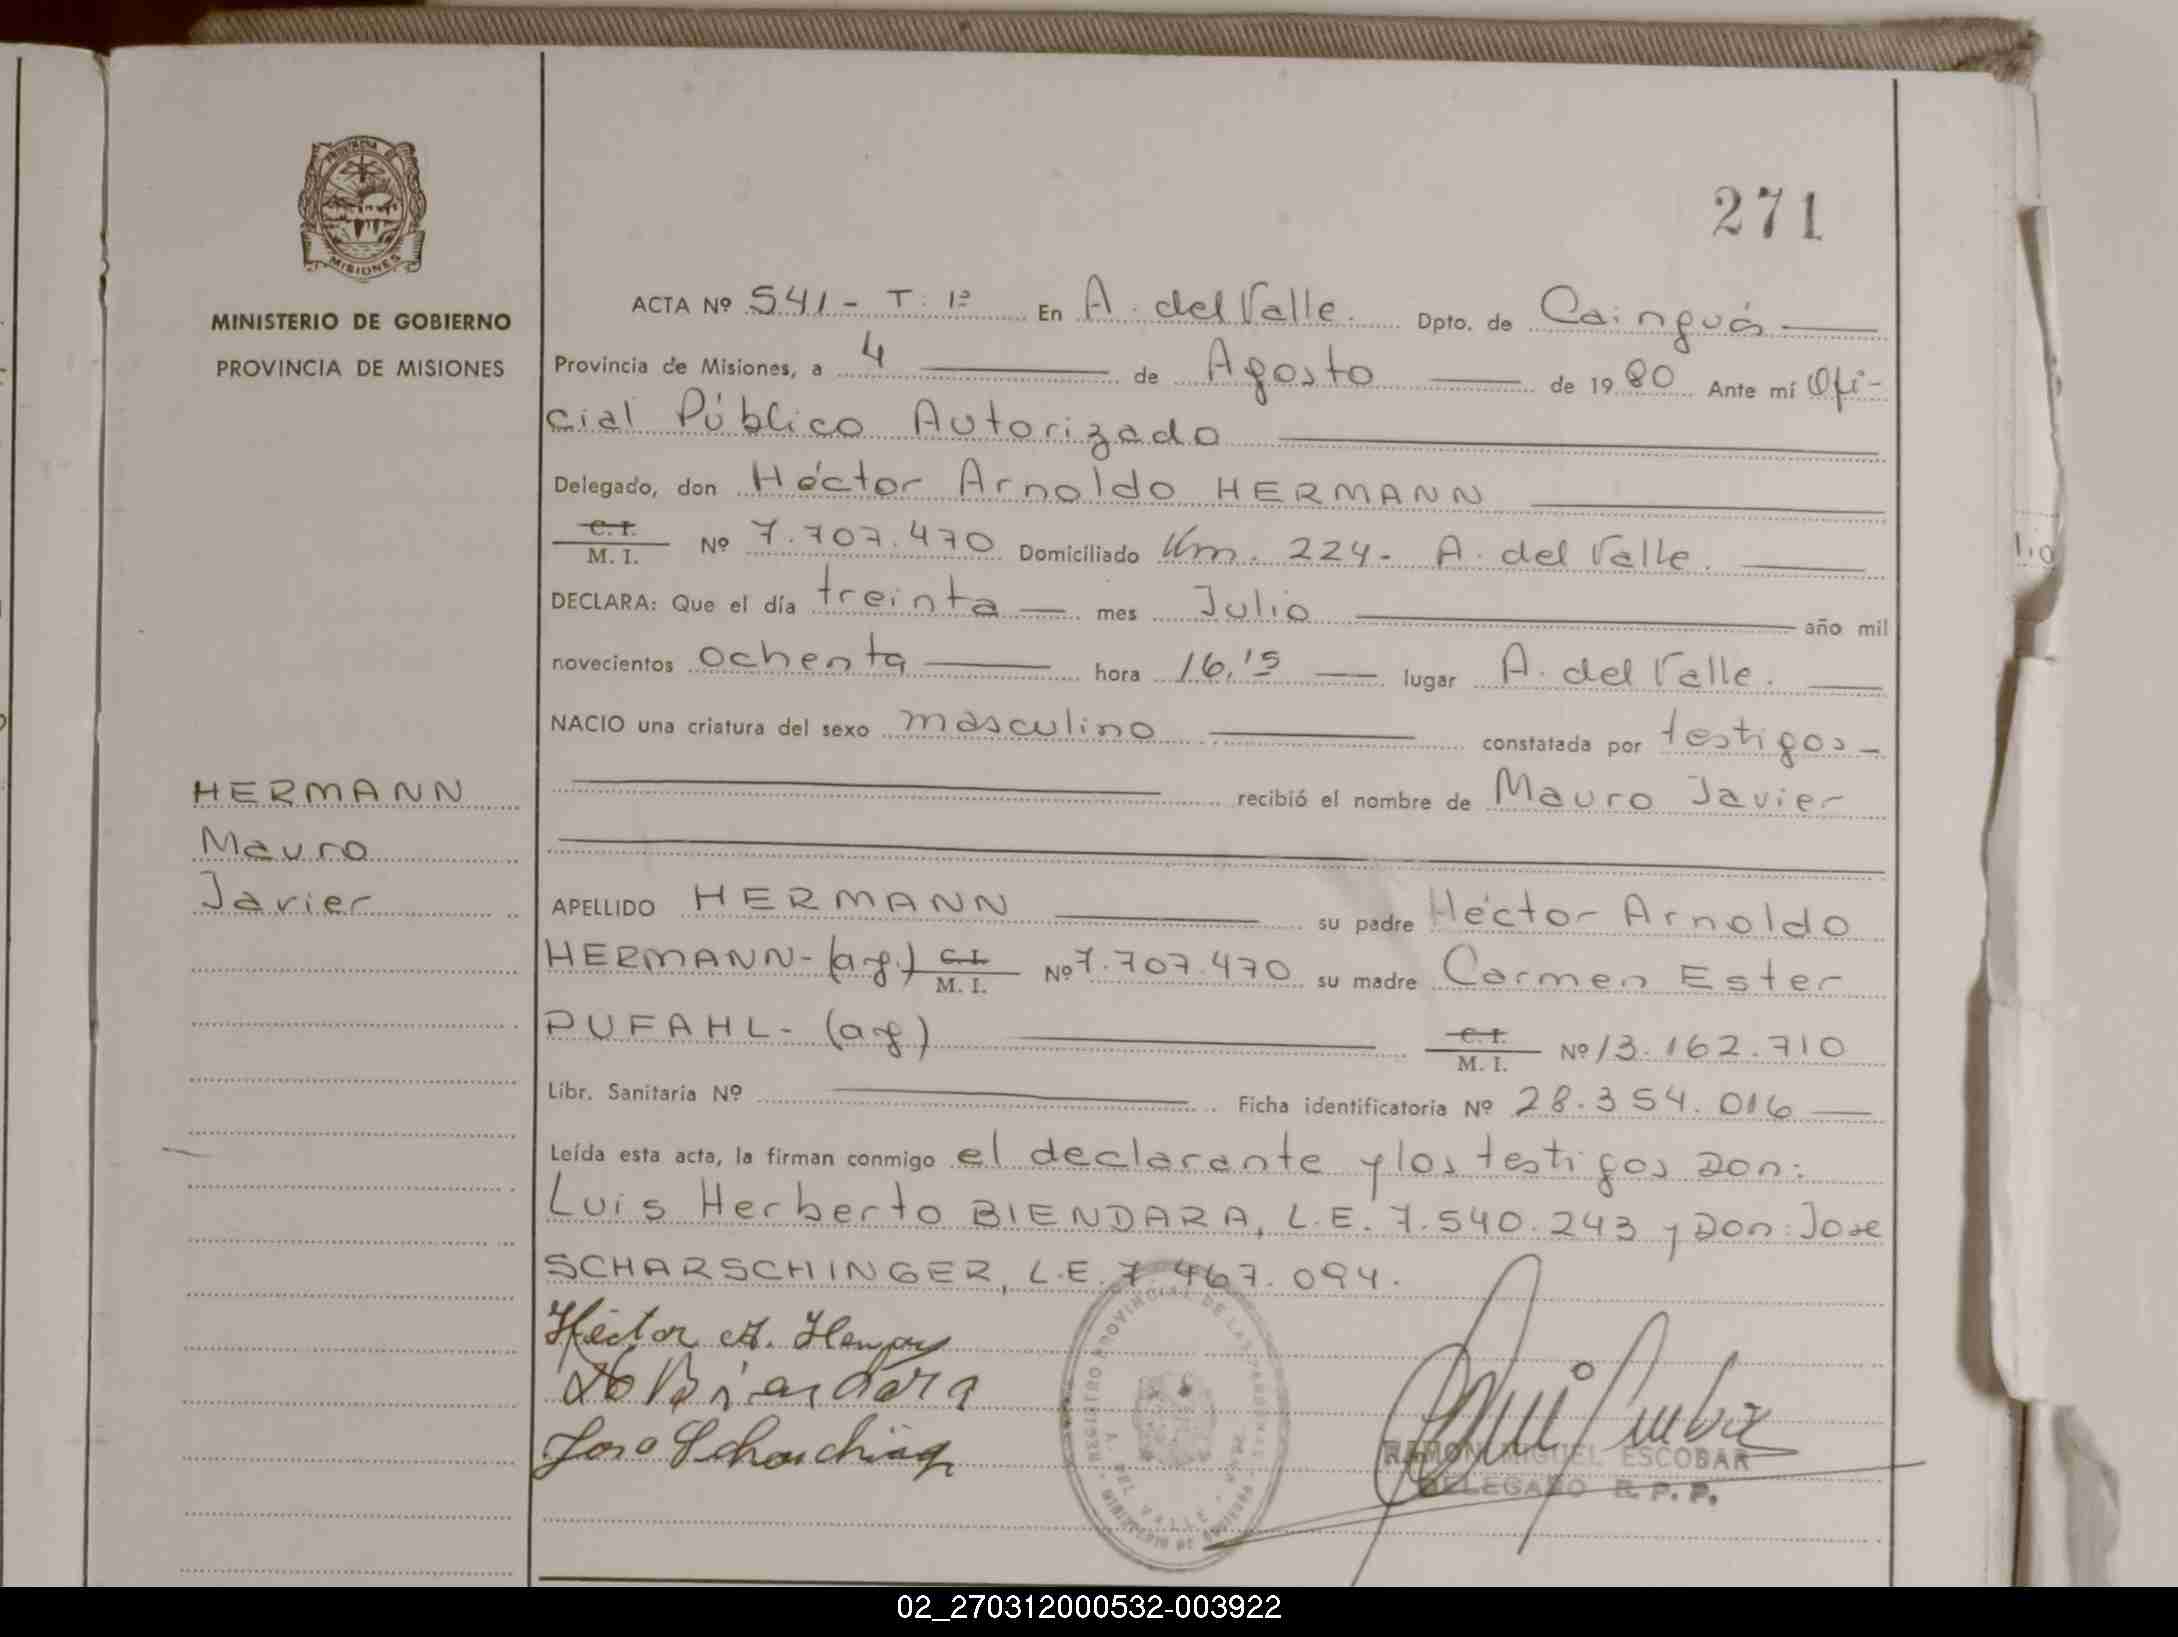 PROVINCIA DE
MISIONES
MINISTERIO DE GOBIERNO
PROVINCIA DE MISIONES
HERMANN
Mauro
Javier
271
ACTA Nº 541 - T: 1º En A. del Valle. Dpto. de Cainguás
Provincia de Misiones, a 4 de Agosto de 1980 Ante mí Ofi-
cial Público Autorizado
Delegado, don Héctor Arnoldo HERMANN
C. I.
M. I. Nº 7.707.470 Domiciliado Km. 224- A. del Valle.
DECLARA: Que el día treinta mes Julio año mil
novecientos ochenta hora 16,15 lugar A. del Valle.
NACIO una criatura del sexo masculino constatada por testigos-
recibió el nombre de Mauro Javier
APELLIDO HERMANN su padre Héctor Arnoldo
HERMANN- (arg.) C. I. M. I. Nº 7.707.470 su madre Carmen Ester
PUFAHL- (arg) C. I. M. I. Nº 13.162.710
Libr. Sanitaria Nº Ficha identificatoria Nº 28.354.016
Leída esta acta, la firman conmigo el declarante y los testigos Don:
Luis Herberto BIENDARA, L.E. 7.540.243 y Don: Jose
SCHARSCHINGER, L.E. 7 467.094.
Héctor A.
REGISTRO PROVINCIAL DE LAS PERSONAS
A. DEL VALLE
RAMON MIGUEL ESCOBAR
DELEGADO R. P. P.
02_270312000532-003922